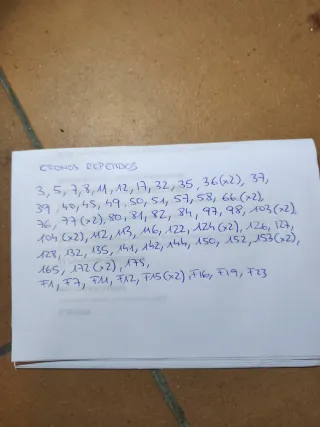 CROMOS REPETIDOS
3, 5, 7, 8, 11, 12, 17, 32, 35, 36(x2), 37,
39, 40, 45, 49, 50, 51, 57, 58, 66(x2),
76, 77(x2), 80, 81, 82, 84, 97, 98, 103(x2),
104(x2), 112, 113, 116, 122, 124(x2), 126, 127,
128, 132, 135, 141, 142, 144, 150, 152, 153(x2),
165, 172(x2), 175,
F1, F7, F11, F12, F15(x2), F16, F19, F23